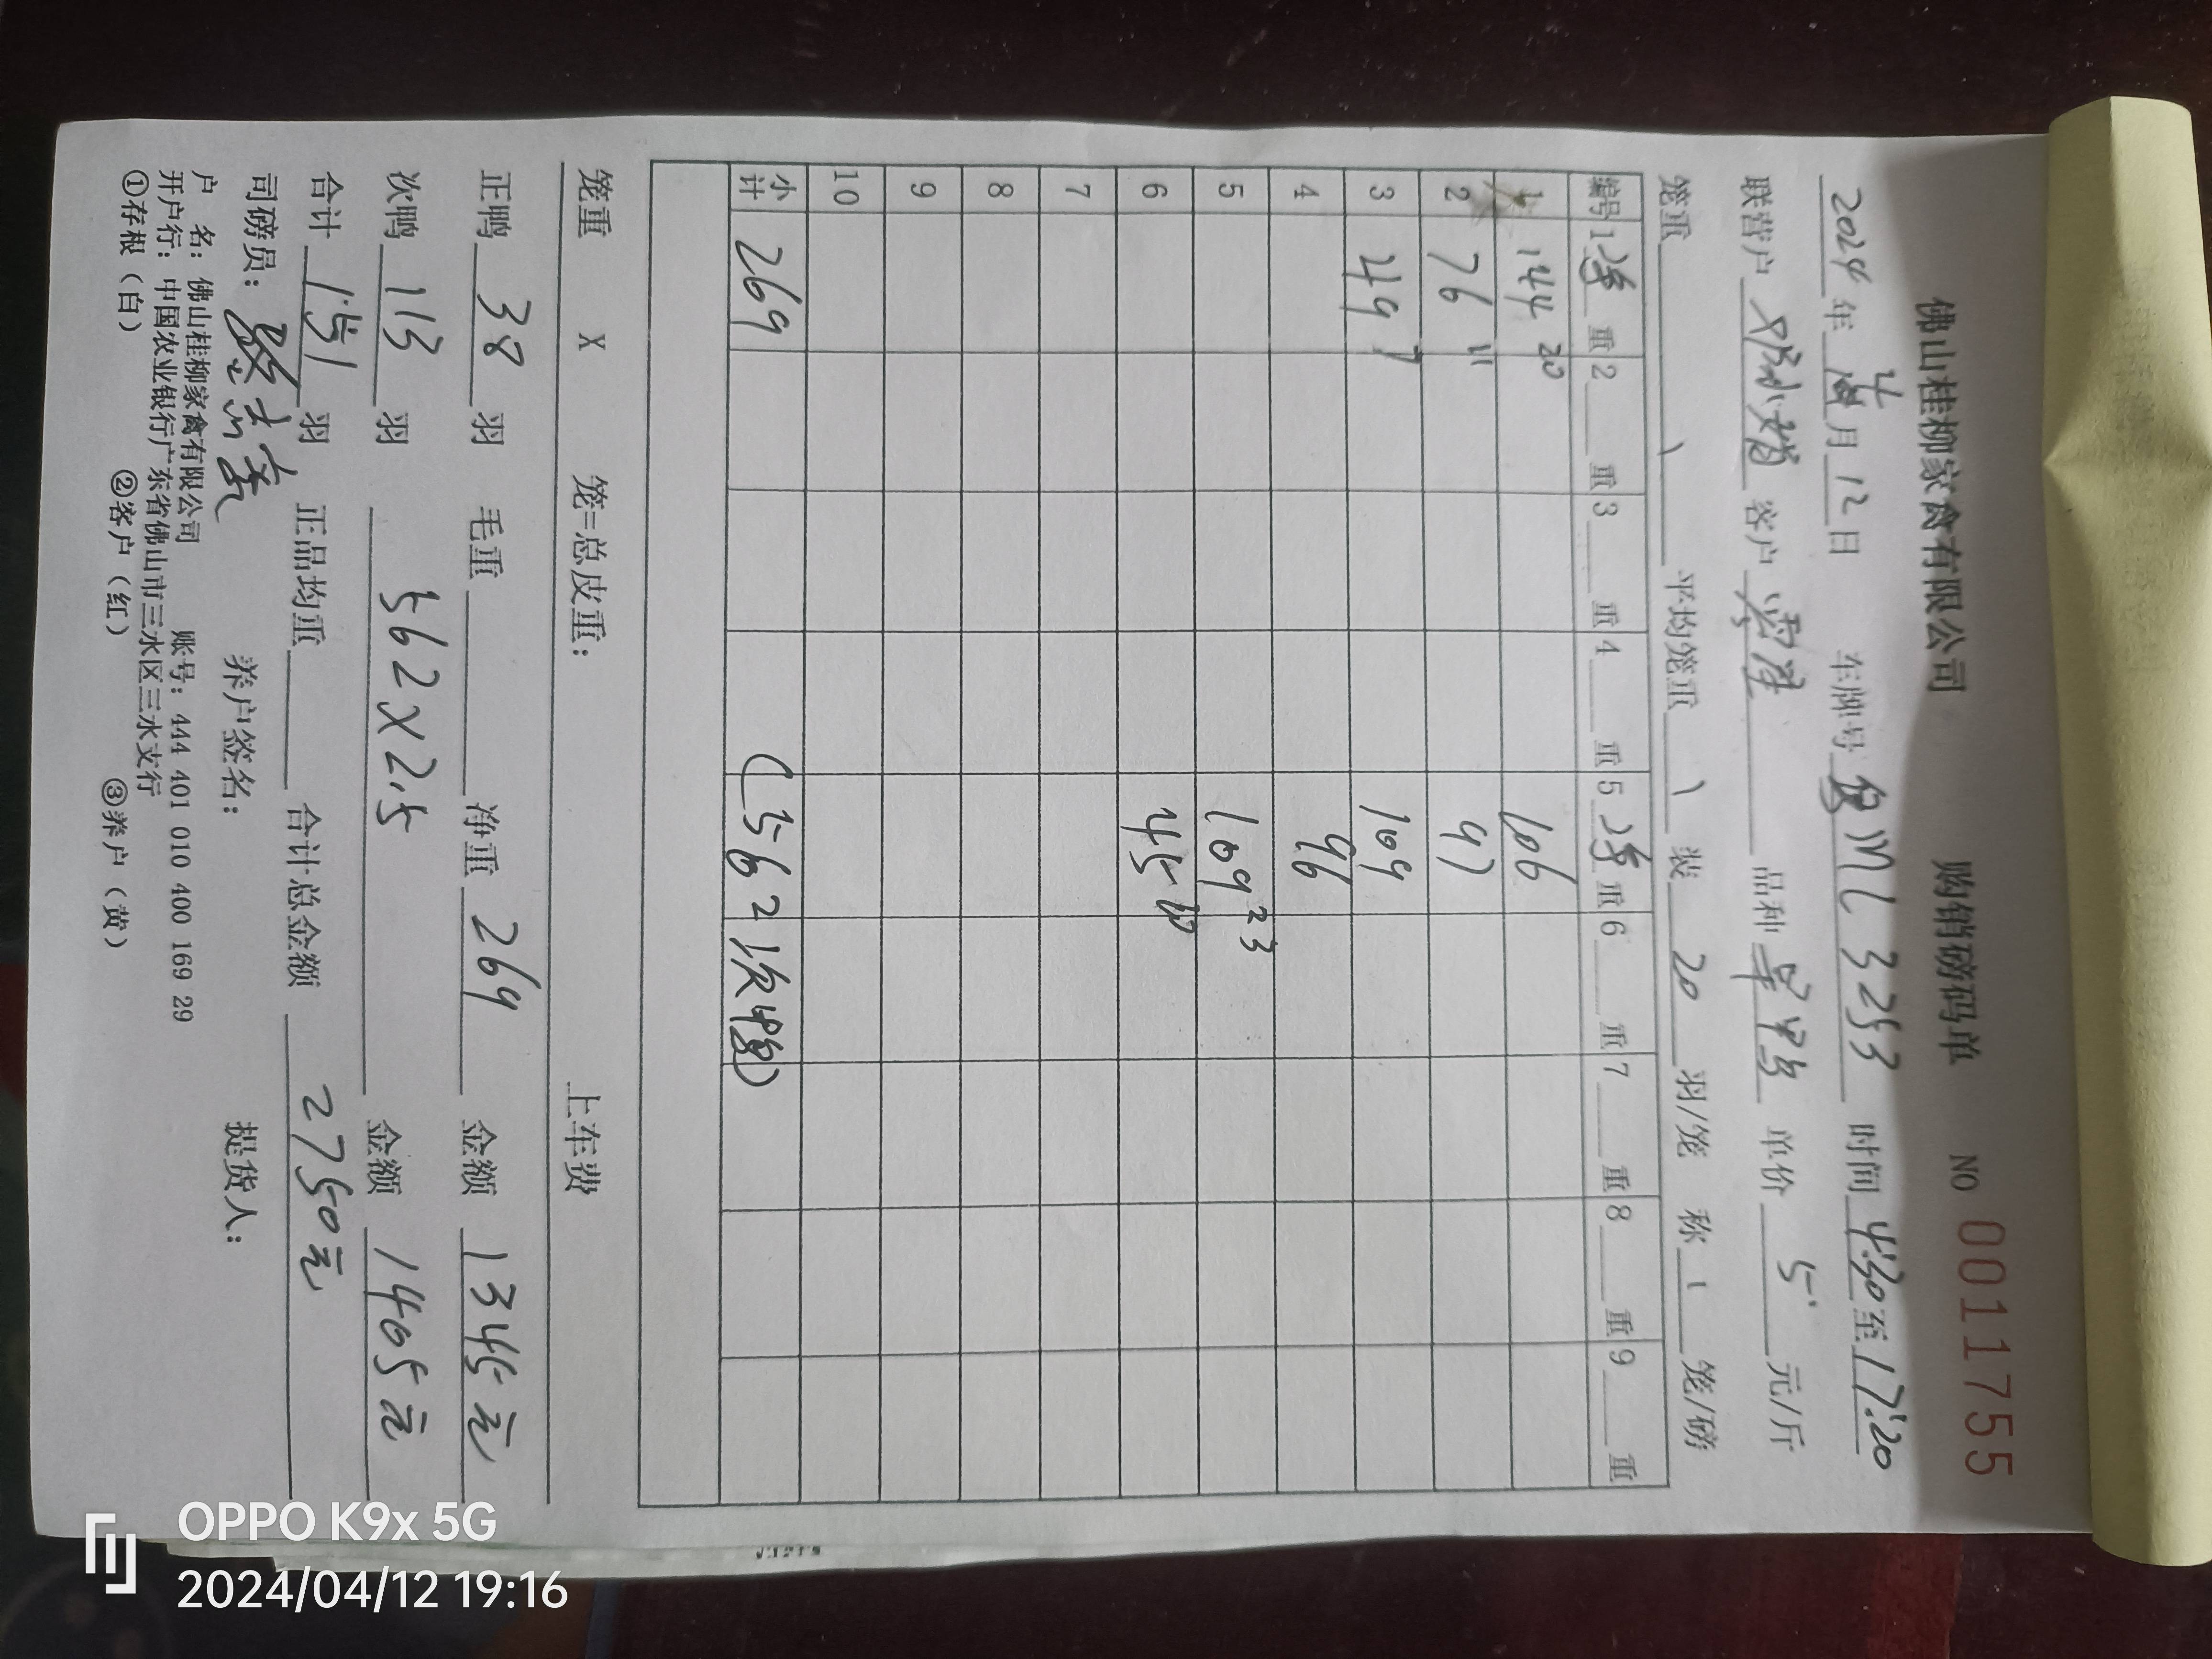 佛山桂柳家禽有限公司 购销磅码单 NO 0011755
2024年4月12日 车牌号 ML3253 时间4:30至17:20
联营户 客户 品种 单价 5 元/斤
笼重 平均笼重 装 20 羽/笼 称 1 笼/磅
编号 1净重 2 重 3 重 4 重 5净重 6 重 7 重 8 重 9 重
1 144 20 106
2 76 11 97
3 49 7 109
4 96
5 109 23
6 45 10
7
8
9
10
小计 269 (562次鸭)
笼重 X 笼=总皮重: 上车费
正鸭 38 羽 毛重 净重 269 金额 1345元
次鸭 113 羽 562×2.5 金额 1405元
合计 151 羽 正品均重 合计总金额 2750元
司磅员: 养户签名: 提货人:
户 名: 佛山桂柳家禽有限公司 账号: 444 401 010 400 169 29
开户行: 中国农业银行广东省佛山市三水区三水支行
①存根(白) ②客户(红) ③养户(黄)
OPPO K9x 5G
2024/04/12 19:16